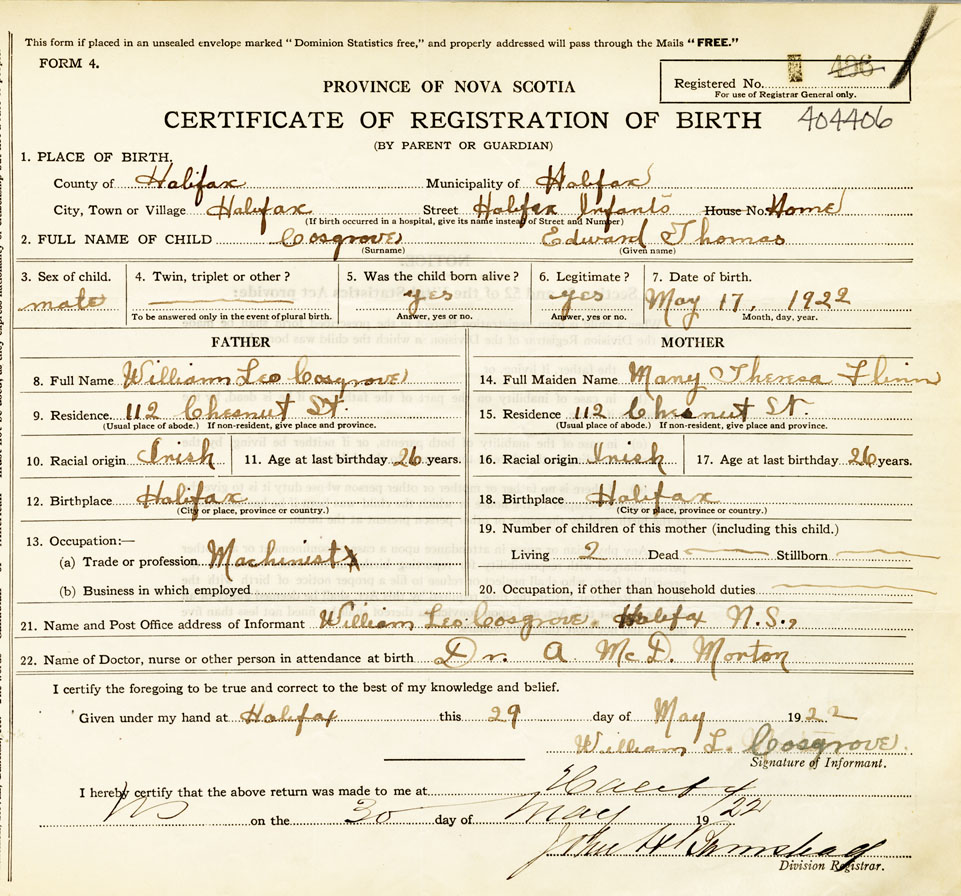 This form if placed in an unsealed envelope marked "Dominion Statistics free," and properly addressed will pass through the Mails "FREE."
FORM 4.
Registered No. 496
For use of Registrar General only.
PROVINCE OF NOVA SCOTIA
CERTIFICATE OF REGISTRATION OF BIRTH 404406
(BY PARENT OR GUARDIAN)
1. PLACE OF BIRTH.
County of Halifax Municipality of Halifax
City, Town or Village Halifax Street Halifax Infants House No. Home
(If birth occurred in a hospital, give its name instead of Street and Number)
2. FULL NAME OF CHILD Cosgrove Edward Thomas
(Surname) (Given name)
3. Sex of child. 4. Twin, triplet or other? 5. Was the child born alive? 6. Legitimate? 7. Date of birth.
male yes yes May 17, 1922
To be answered only in the event of plural birth. Answer, yes or no. Answer, yes or no. Month, day, year.
FATHER MOTHER
8. Full Name William Leo Cosgrove 14. Full Maiden Name Mary Theresa Flinn
9. Residence. 112 Chesnut St. 15. Residence 112 Chesnut St.
(Usual place of abode.) If non-resident, give place and province. (Usual place of abode.) If non-resident, give place and province.
10. Racial origin Irish 11. Age at last birthday 26 years. 16. Racial origin Irish 17. Age at last birthday 26 years.
12. Birthplace Halifax 18. Birthplace Halifax
(City or place, province or country.) (City or place, province or country.)
19. Number of children of this mother (including this child.)
13. Occupation:—
(a) Trade or profession Machinist Living 2 Dead Stillborn
(b) Business in which employed 20. Occupation, if other than household duties
21. Name and Post Office address of Informant William Leo Cosgrove. Halifax N.S.,
22. Name of Doctor, nurse or other person in attendance at birth Dr. A McD. Morton
I certify the foregoing to be true and correct to the best of my knowledge and belief.
Given under my hand at Halifax this 29 day of May 1922
William L. Cosgrove.
Signature of Informant.
I hereby certify that the above return was made to me at
NS on the 30 day of May 19/22
John
Division Registrar.